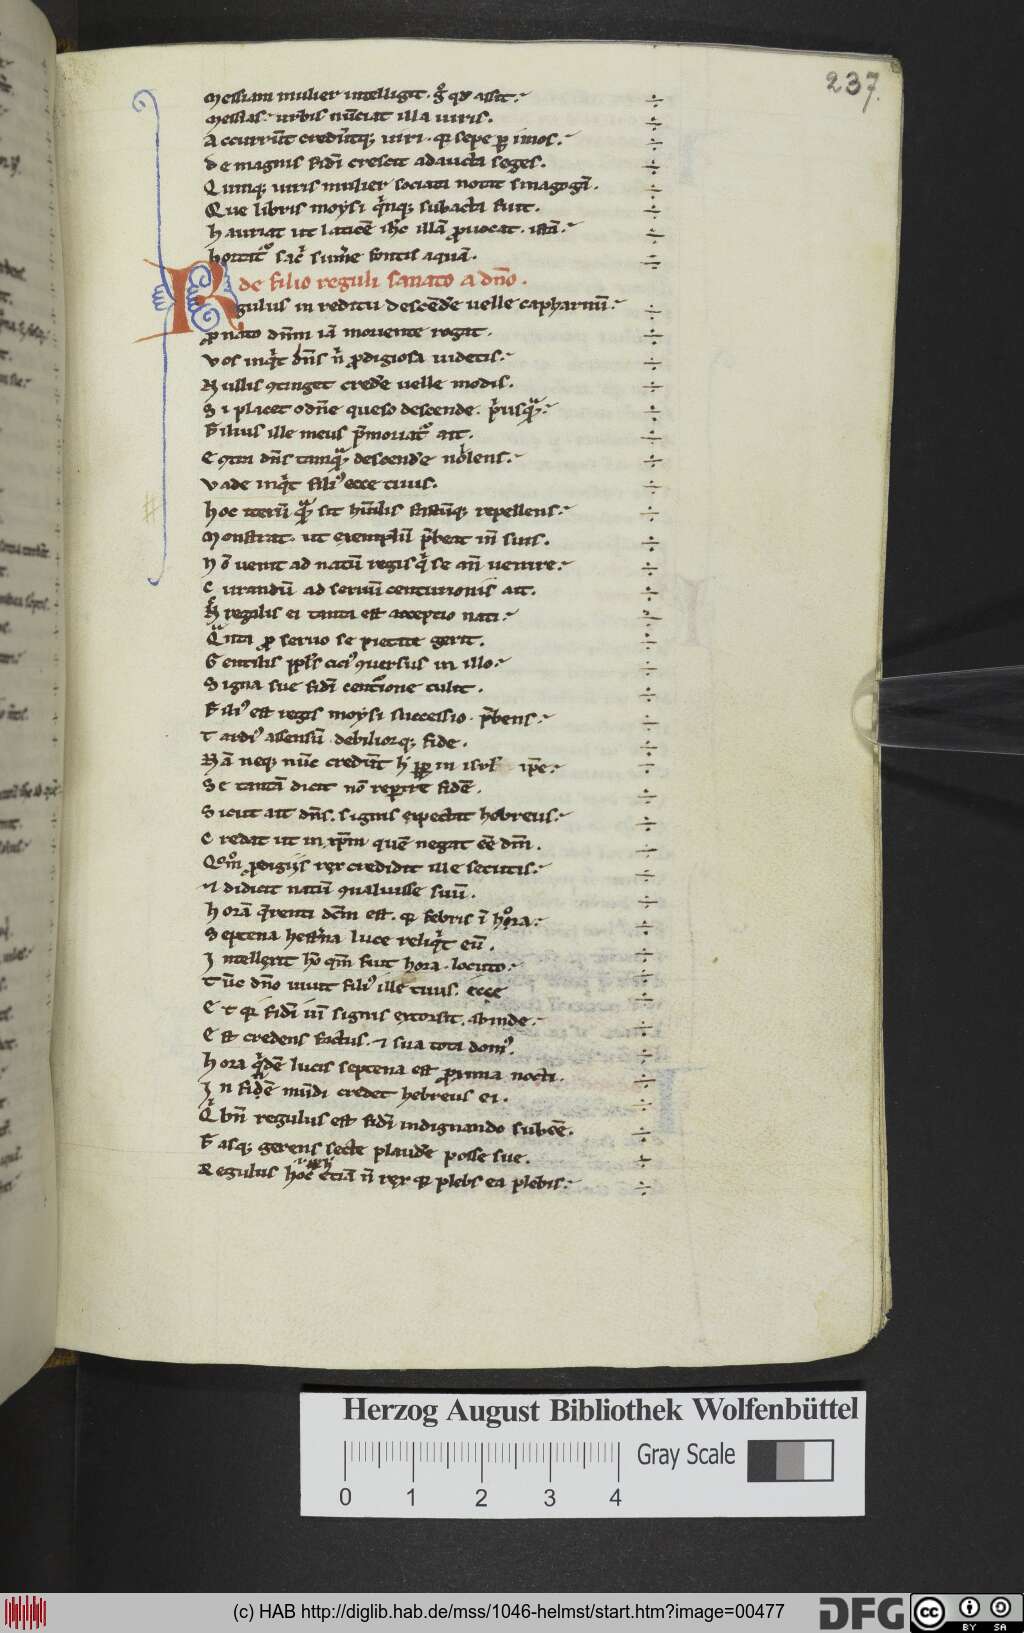 237.
Messiam mulier intelligit. g̊ qd assit.
Messias. urbis nūciat illa uiris.
Accurrūt credūtq; uiri. qr sepe ꝑ imos.
de magnis fidī crescit adaucta seges.
Quinq; uiris mulier sociata notat sinagogā.
Que libris moysi qͥnq; subacta fuit.
hauriat ut laticē ihc̄ illā ꝓuocat. istā.
hortat᷑ sac̄ sum̄e fontis aquā.
de filio reguli sanato a dn̄o.
Regulus in reditu descēde uelle capharnaū.
ꝓ nato dn̄m iā moriente rogat.
Vos inqͥt dn̄s n̄ ꝓdigiosa uidetis.
Nullis ꝯtinget crede uelle modis.
Si placet o dn̄e queso descende. pͥusqᷓ.
Filius ille meus p̄moriat᷑ ait.
E ꝯtra dn̄s tamqᷓ descende nolens.
Vade inqͥt filiꝰ ecce tuus.
hoc iterū qᷓ sit humilis fastūq; repellens.
Monstrat. ut exemplū p̄beat in̄ suis.
Nō uenit ad natū regis qͥ se an̄ uenire.
Curandū ad seruū centurionis ait.
N̄ regalis ei tanta est acceptio nati.
Qᷓnta ꝓ seruo se pietate gerit.
Gentilis ppl̄s citiꝰ ꝯuersus in illo.
Signa sue fidī centione tulit.
Filiꝰ est regis moysi successio. p̄bens.
Tardiꝰ assensū debiliorq; fide.
Nā neq; nūc credūt in isrl̄ ip̄e.
Se tantā dicit nō reperire fidē.
Sicut ait dn̄s. signis expectat hebreus.
Credat ut in xp̄m quē negat eē dm̄.
ꝓdigijs rex credidit ille secutis.
⁊ didicit natū ꝯualuisse suū.
horā qͥrenti dc̄m est. qr febris ī hora.
Septena hest̄na luce reliqͥt eū.
Intellexit hō qm̄ fuit hora. locuto.
Tūc dn̄o uiuit filiꝰ ille tuus. ecce
Et qr fidī uī signis extorsit. abinde.
Est credens factus. ⁊ sua tota domꝰ.
hora qͥdē lucis septena est ꝓxima nocti.
In fidē mūdi credet hebreus ei.
bn̄ regulus est fidī indignando subēē.
Fasq; gerens secte plaude posse sue.
Regulus hoc etiā n̄ rex qr plebs ea plebis.
Herzog August Bibliothek Wolfenbüttel
Gray Scale
0 1 2 3 4
(c) HAB http://diglib.hab.de/mss/1046-helmst/start.htm?image=00477
DFG
cc
BY SA